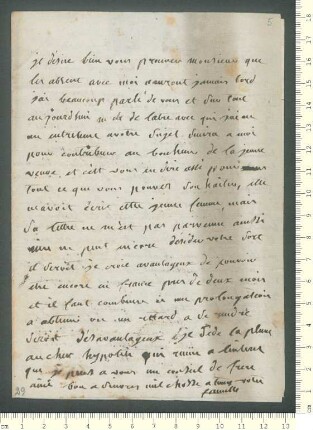 5
je désire bien vous prouver monsieur que
les absens avec moi nauront jamais tord
jai beaucoup parlé de vous et dun tout
aujourdhui m de de latre avec qui jai eu
un entretiene avotre sujet
pour contribuer au bonheur de la jeune
veuve, et cest vous en dire assé pour
tout ce que vous pouvez souhaiter, elle
mavoit écrit cette jeune femme, mais
sa lettre ne mest pas parvenue
rien ne peut encore décider votre sort
il seroit je crois avantageux de pouvoir
être encore en france près de deux mois
et il faut combiner si une prolongation
a obtenir ou un retard a se rendre
seroit désavantageux je cède la plume
au cher hypolite qui
que je à vous un conseil de frere
ami bon a suivre mil choses a tous votre
famille
29